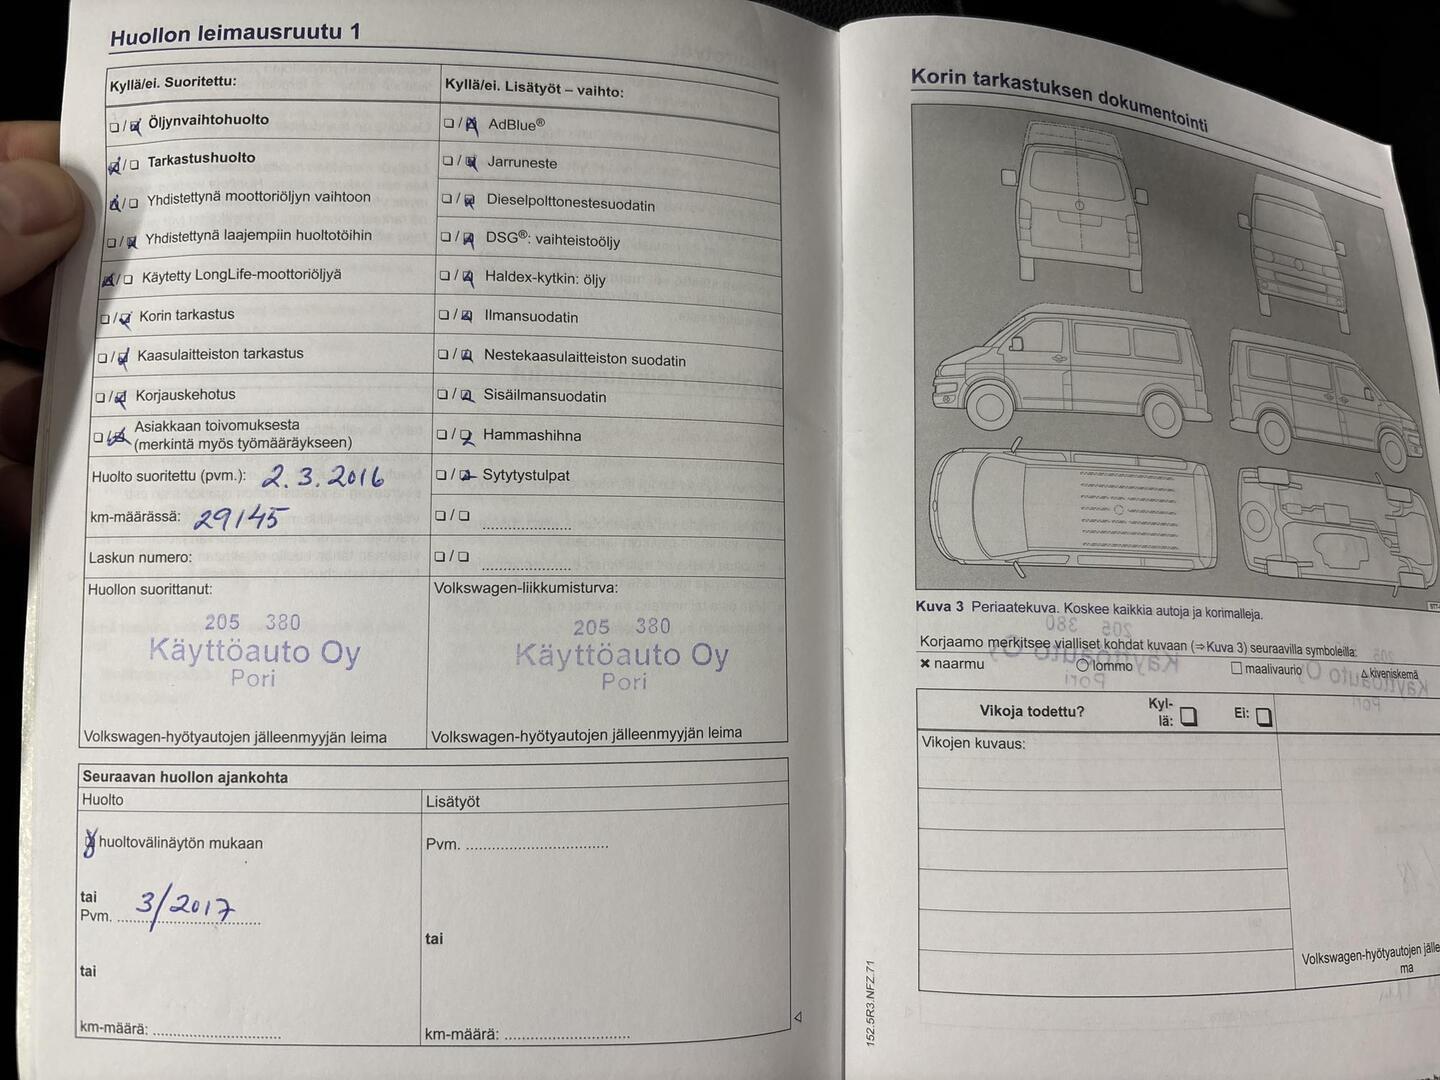 Huollon leimausruutu 1
Kyllä/ei. Suoritettu:
Öljynvaihtohuolto
Tarkastushuolto
Yhdistettynä moottoriöljyn vaihtoon
Yhdistettynä laajempiin huoltotöihin
Käytetty LongLife-moottoriöljyä
Korin tarkastus
Kaasulaitteiston tarkastus
Korjauskehotus
Asiakkaan toivomuksesta
(merkintä myös työmääräykseen)
Huolto suoritettu (pvm.): 2.3.2016
km-määrässä: 29145
Laskun numero:
Huollon suorittanut:
205 380
Käyttöauto Oy
Pori
Volkswagen-hyötyautojen jälleenmyyjän leima
Kyllä/ei. Lisätyöt – vaihto:
AdBlue®
Jarruneste
Dieselpolttonestesuodatin
DSG®: vaihteistoöljy
Haldex-kytkin: öljy
Ilmansuodatin
Nestekaasulaitteiston suodatin
Sisäilmansuodatin
Hammashihna
Sytytystulpat
Volkswagen-liikkumisturva:
205 380
Käyttöauto Oy
Pori
Volkswagen-hyötyautojen jälleenmyyjän leima
Seuraavan huollon ajankohta
Huolto
huoltovälinäytön mukaan
tai
Pvm. 3/2017
tai
km-määrä:
Lisätyöt
Pvm.
tai
km-määrä:
Korin tarkastuksen dokumentointi
Kuva 3 Periaatekuva. Koskee kaikkia autoja ja korimalleja.
Korjaamo merkitsee vialliset kohdat kuvaan (⇒Kuva 3) seuraavilla symboleilla:
× naarmu ○ lommo □ maalivaurio △ kiveniskemä
Vikoja todettu? Kyl-
lä: Ei:
Vikojen kuvaus:
Volkswagen-hyötyautojen jälle
ma
152.5R3.NFZ.71